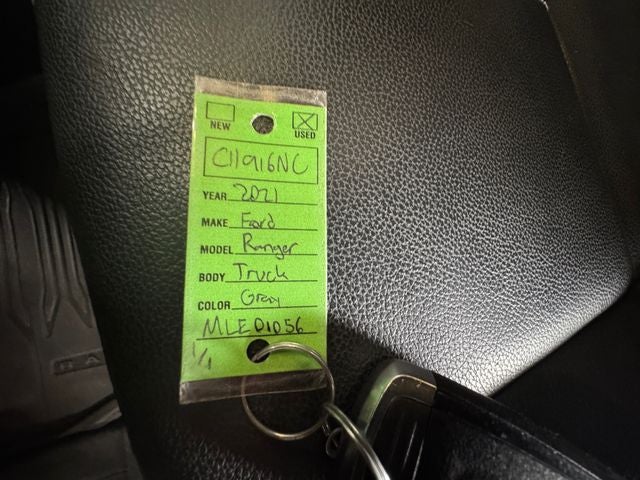 NEW USED
C11916NC
YEAR 2021
MAKE Ford
MODEL Ranger
BODY Truck
COLOR Gray
MLED1056
1/1